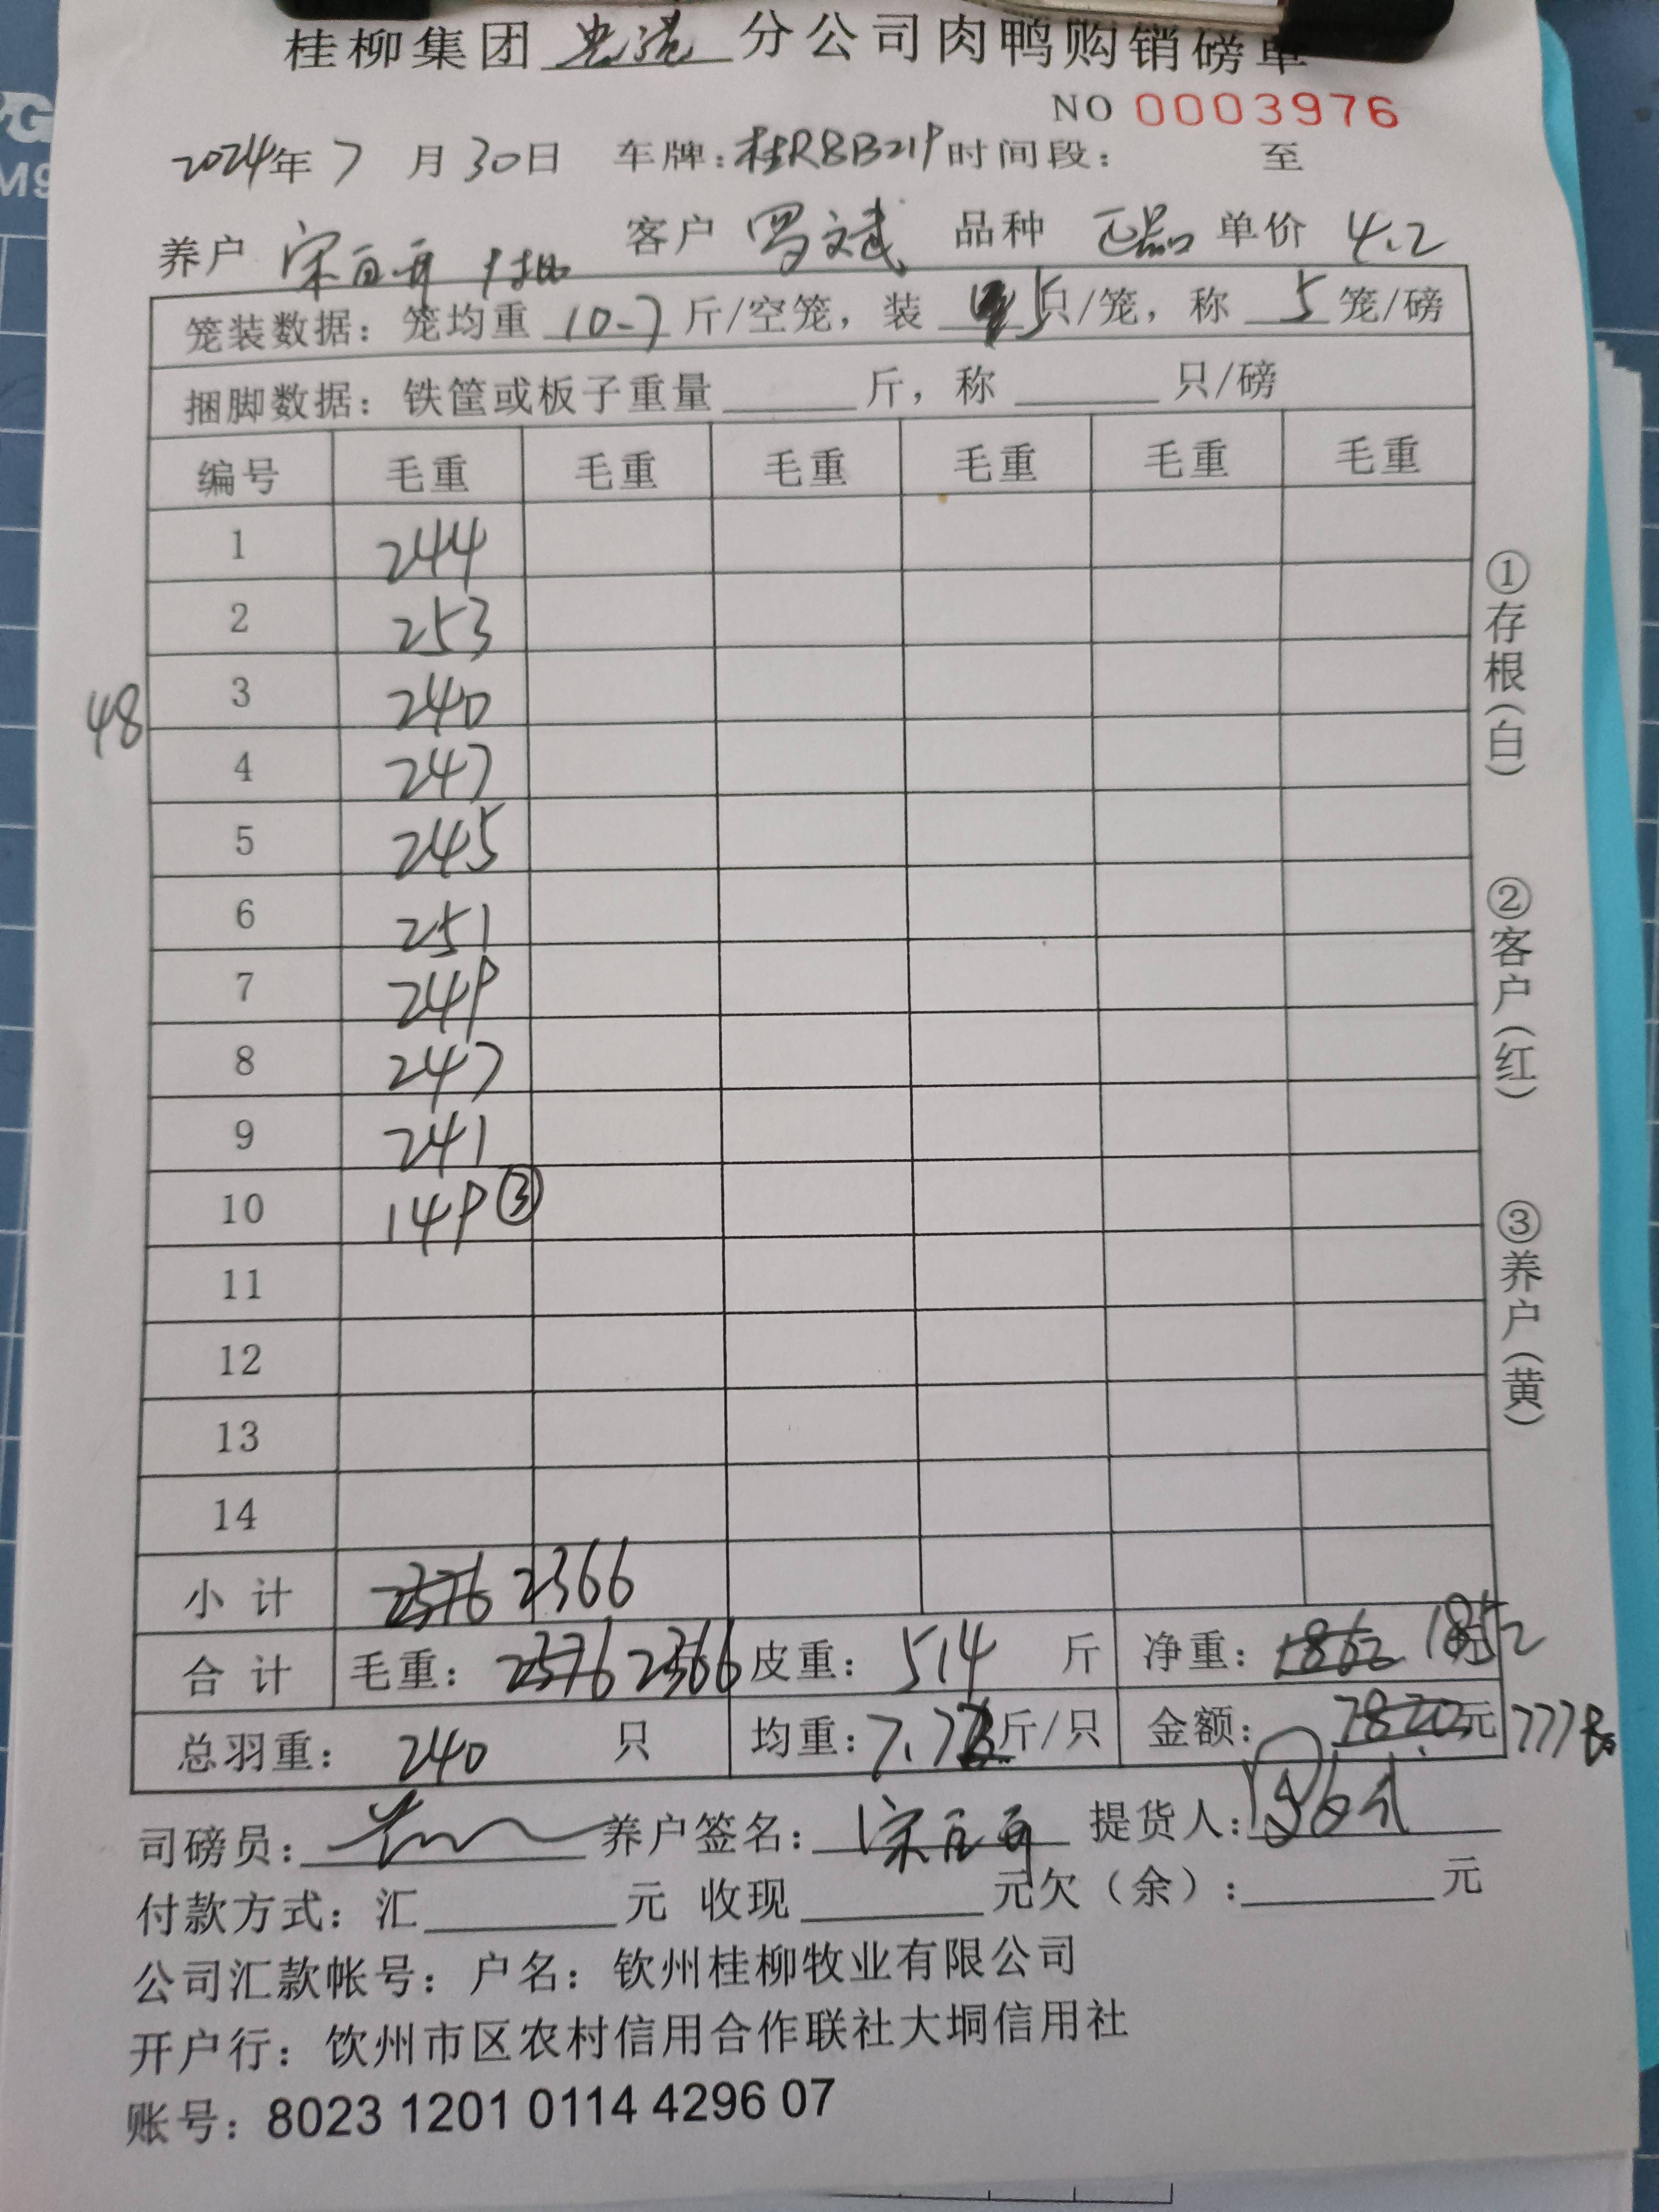 桂柳集团 分公司肉鸭购销磅单
NO 0003976
2024年7月30日 车牌:桂R8B219 时间段: 至
养户 宋 客户 罗文斌 品种 正品 单价 4.2
笼装数据: 笼均重 10.7 斤/空笼, 装 5 只/笼, 称 5 笼/磅
捆脚数据: 铁筐或板子重量 斤, 称 只/磅
编号 毛重 毛重 毛重 毛重 毛重 毛重
1 244
2 253
3 240
48
4 247
5 245
6 251
7 249
8 247
9 241
10 149 ③
11
12
13
14
小计 2376 2366
合计 毛重: 2376 2366 皮重: 514 斤 净重: 1862 1852
总羽重: 240 只 均重: 7.7 斤/只 金额: 7820元 7778
司磅员: 养户签名: 宋 提货人:
付款方式: 汇 元 收现 元欠(余): 元
公司汇款帐号: 户名: 钦州桂柳牧业有限公司
开户行: 饮州市区农村信用合作联社大垌信用社
账号: 8023 1201 0114 4296 07
①存根(白)
②客户(红)
③养户(黄)